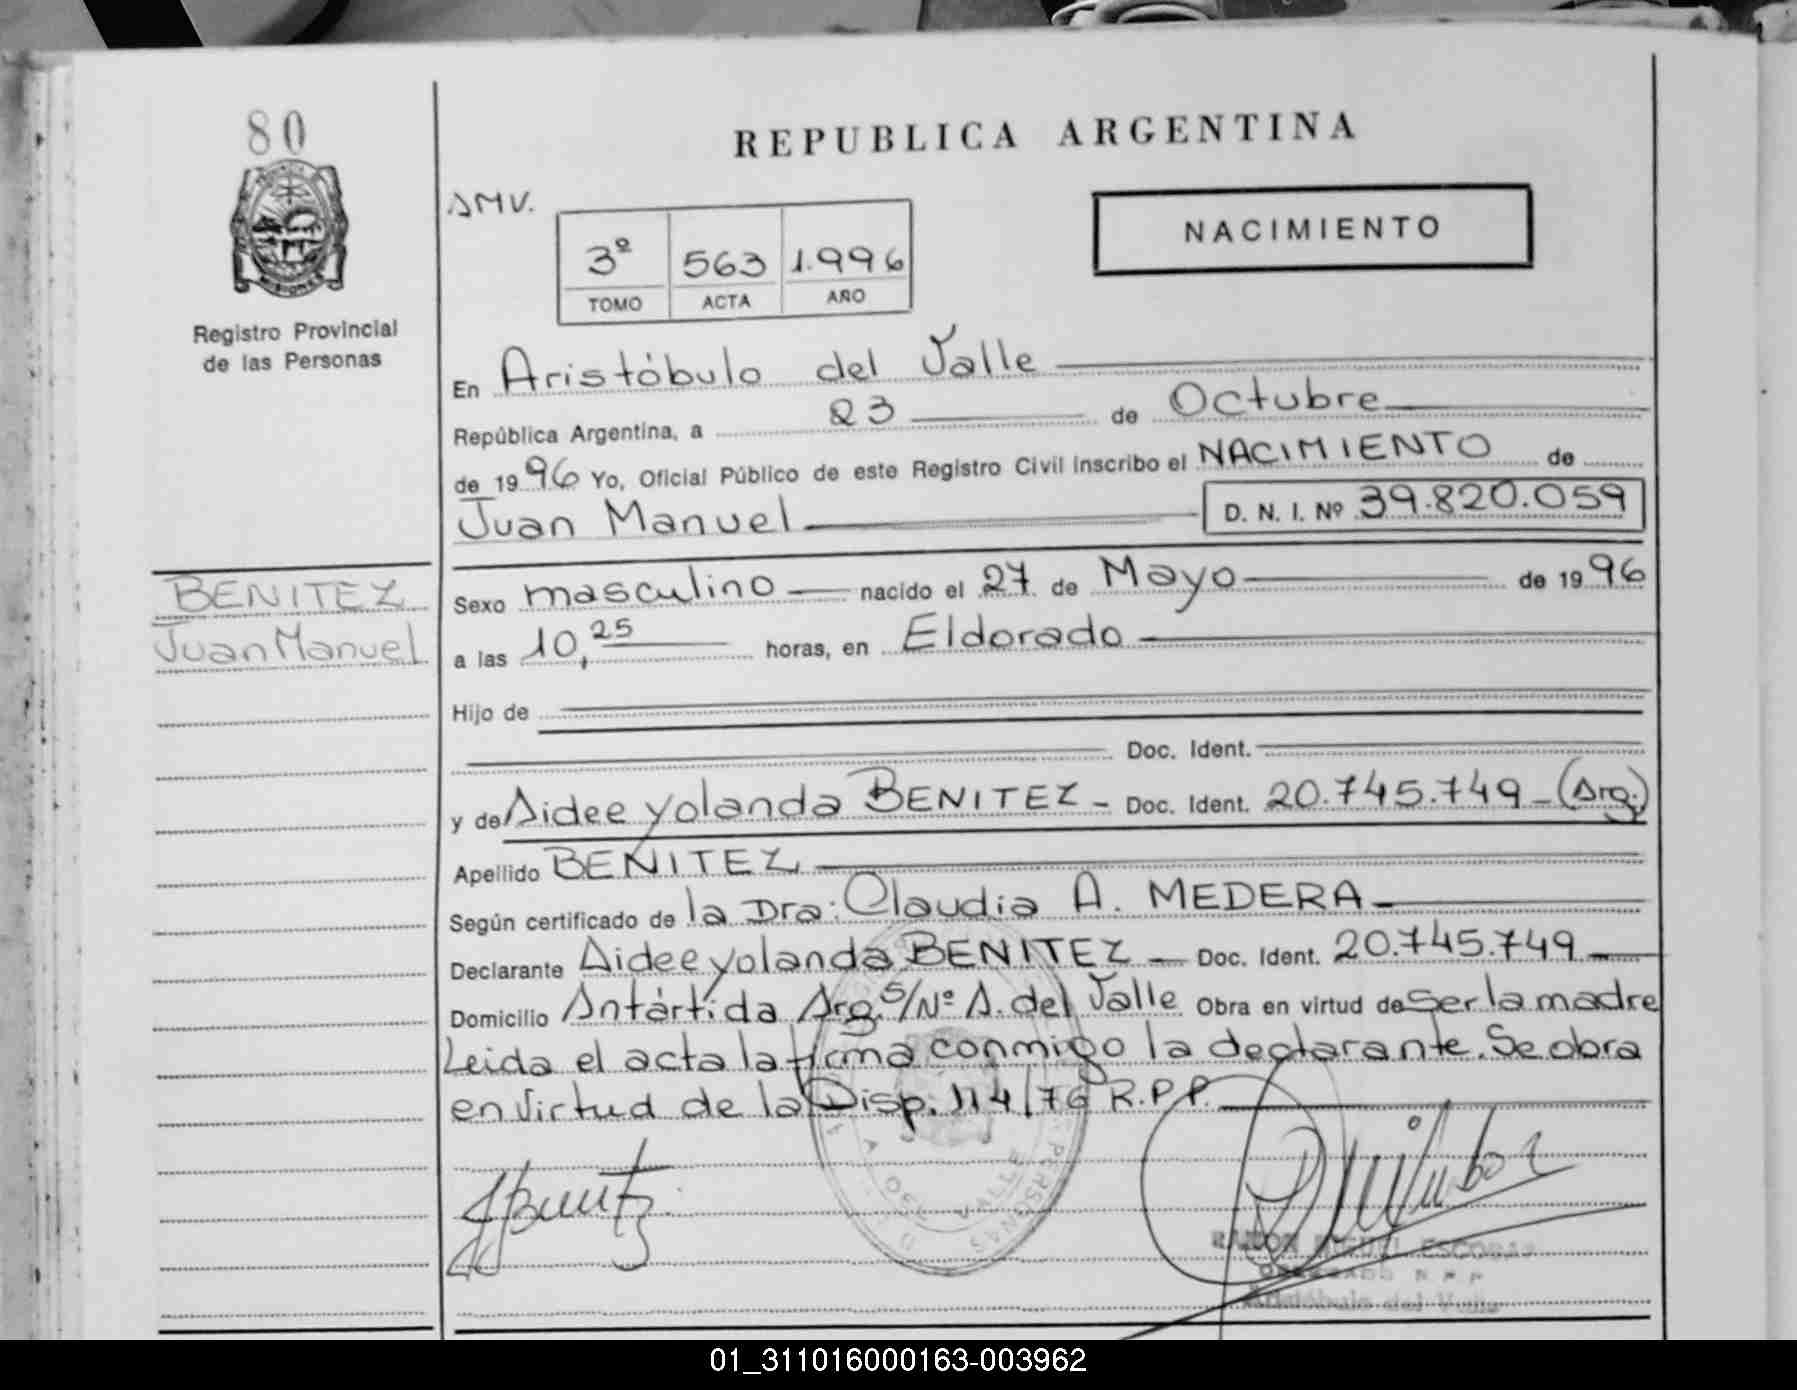 80
REPUBLICA ARGENTINA
AMV.
NACIMIENTO
3º 563 1.996
TOMO ACTA AÑO
Registro Provincial
de las Personas
En Aristóbulo del Valle
República Argentina, a 23 de Octubre
de 1996 Yo, Oficial Público de este Registro Civil inscribo el NACIMIENTO de
Juan Manuel D. N. I. Nº 39.820.059
BENITEZ
Juan Manuel
Sexo masculino nacido el 27 de Mayo de 1996
a las 10,25 horas, en Eldorado
Hijo de
Doc. Ident.
y de Aidee yolanda BENITEZ - Doc. Ident. 20.745.749 - (Arg.)
Apellido BENITEZ
Según certificado de la Dra: Claudia A. MEDERA
Declarante Aidee yolanda BENITEZ - Doc. Ident. 20.745.749
Domicilio Antártida Arg. S/Nº A. del Valle Obra en virtud de Ser la madre
Leida el acta la firma conmigo la declarante. Se obra
en Virtud de la Disp. 114/76 R.P.P.
RAMON MIGUEL ESCOBAR
DELEGADO R P P
Aristóbulo del Valle
01_311016000163-003962